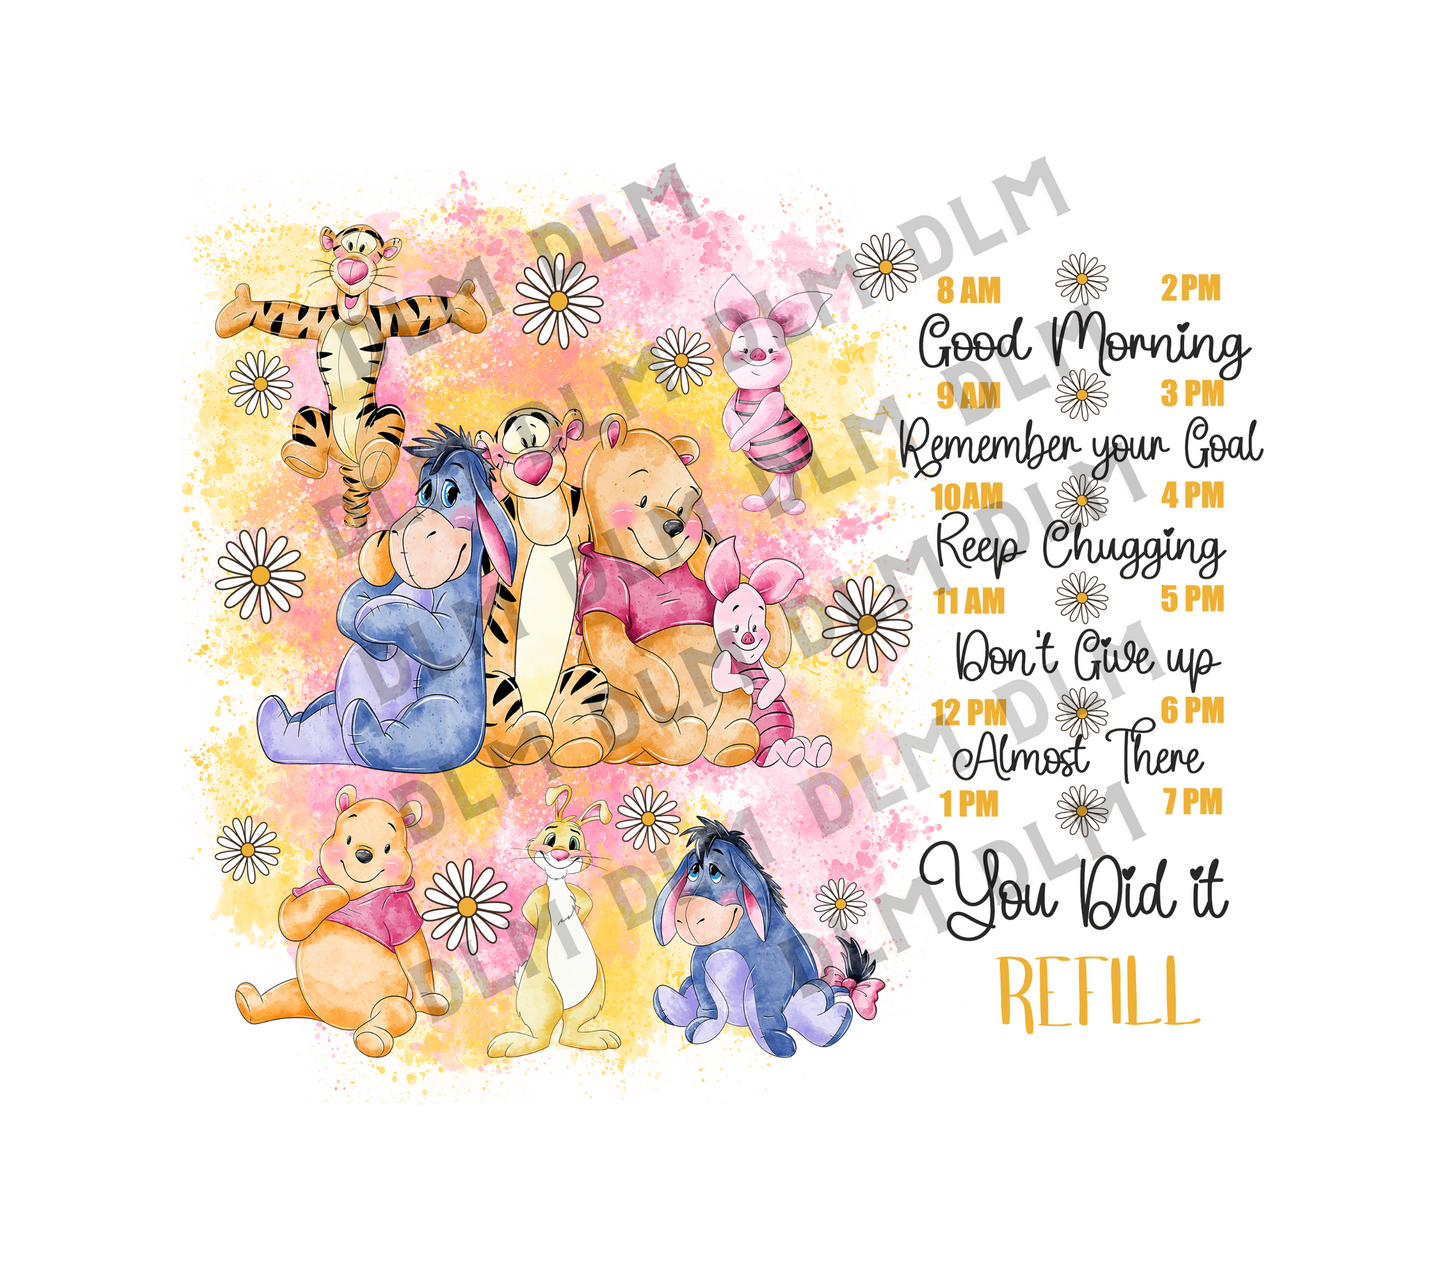 8 AM 2 PM
Good Morning
9 AM 3 PM
Remember your Goal
10 AM 4 PM
Keep Chugging
11 AM 5 PM
Don't Give up
12 PM 6 PM
Almost There
1 PM 7 PM
You Did it
REFILL
DLM DLM
DLM DLM DLM DLM
DLM DLM DLM DLM
DLM DLM DLM DLM
DLM DLM DLM DLM
DLM DLM DLM DLM